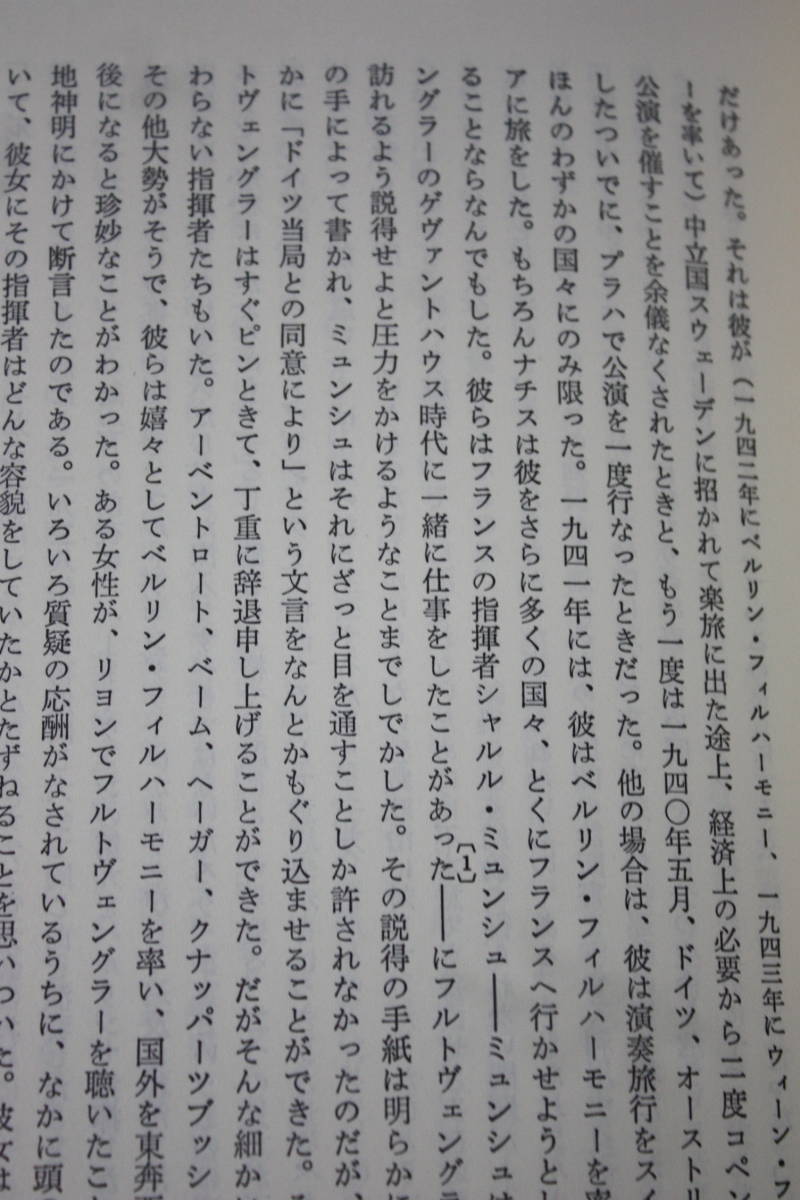 だけあった。それは彼が(一九四二年にベルリン・フィルハーモニー、一九四三年にウィーン・フ
ーを率いて)中立国スウェーデンに招かれて楽旅に出た途上、経済上の必要から二度コペン
公演を催すことを余儀なくされたときと、もう一度は一九四〇年五月、ドイツ、オーストリ
したついでに、プラハで公演を一度行なったときだった。他の場合は、彼は演奏旅行をス
ほんのわずかの国々にのみ限った。一九四一年には、彼はベルリン・フィルハーモニーを率
アに旅をした。もちろんナチスは彼をさらに多くの国々、とくにフランスへ行かせようと
ることならなんでもした。彼らはフランスの指揮者シャルル・ミュンシュ――ミュンシュは
ングラーのゲヴァントハウス時代に一緒に仕事をしたことがあった〔1〕――にフルトヴェングラ
訪れるよう説得せよと圧力をかけるようなことまでしでかした。その説得の手紙は明らかに
の手によって書かれ、ミュンシュはそれにざっと目を通すことしか許されなかったのだが、
かに「ドイツ当局との同意により」という文言をなんとかもぐり込ませることができた。
トヴェングラーはすぐピンときて、丁重に辞退申し上げることができた。だがそんな細か
わらない指揮者たちもいた。アーベントロート、ベーム、ヘーガー、クナッパーツブッシ
その他大勢がそうで、彼らは嬉々としてベルリン・フィルハーモニーを率い、国外を東奔
後になると珍妙なことがわかった。ある女性が、リヨンでフルトヴェングラーを聴いたこ
地神明にかけて断言したのである。いろいろ質疑の応酬がなされているうちに、なかに頭
いて、彼女にその指揮者はどんな容貌をしていたかとたずねることを思いついた。彼女は